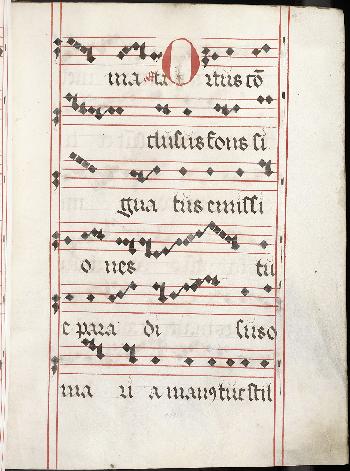 ma ta Ortus cō
clusus fons si
gna tus emissi
o nes tu
e para di sus o
ma ri a manꝰ tue stil